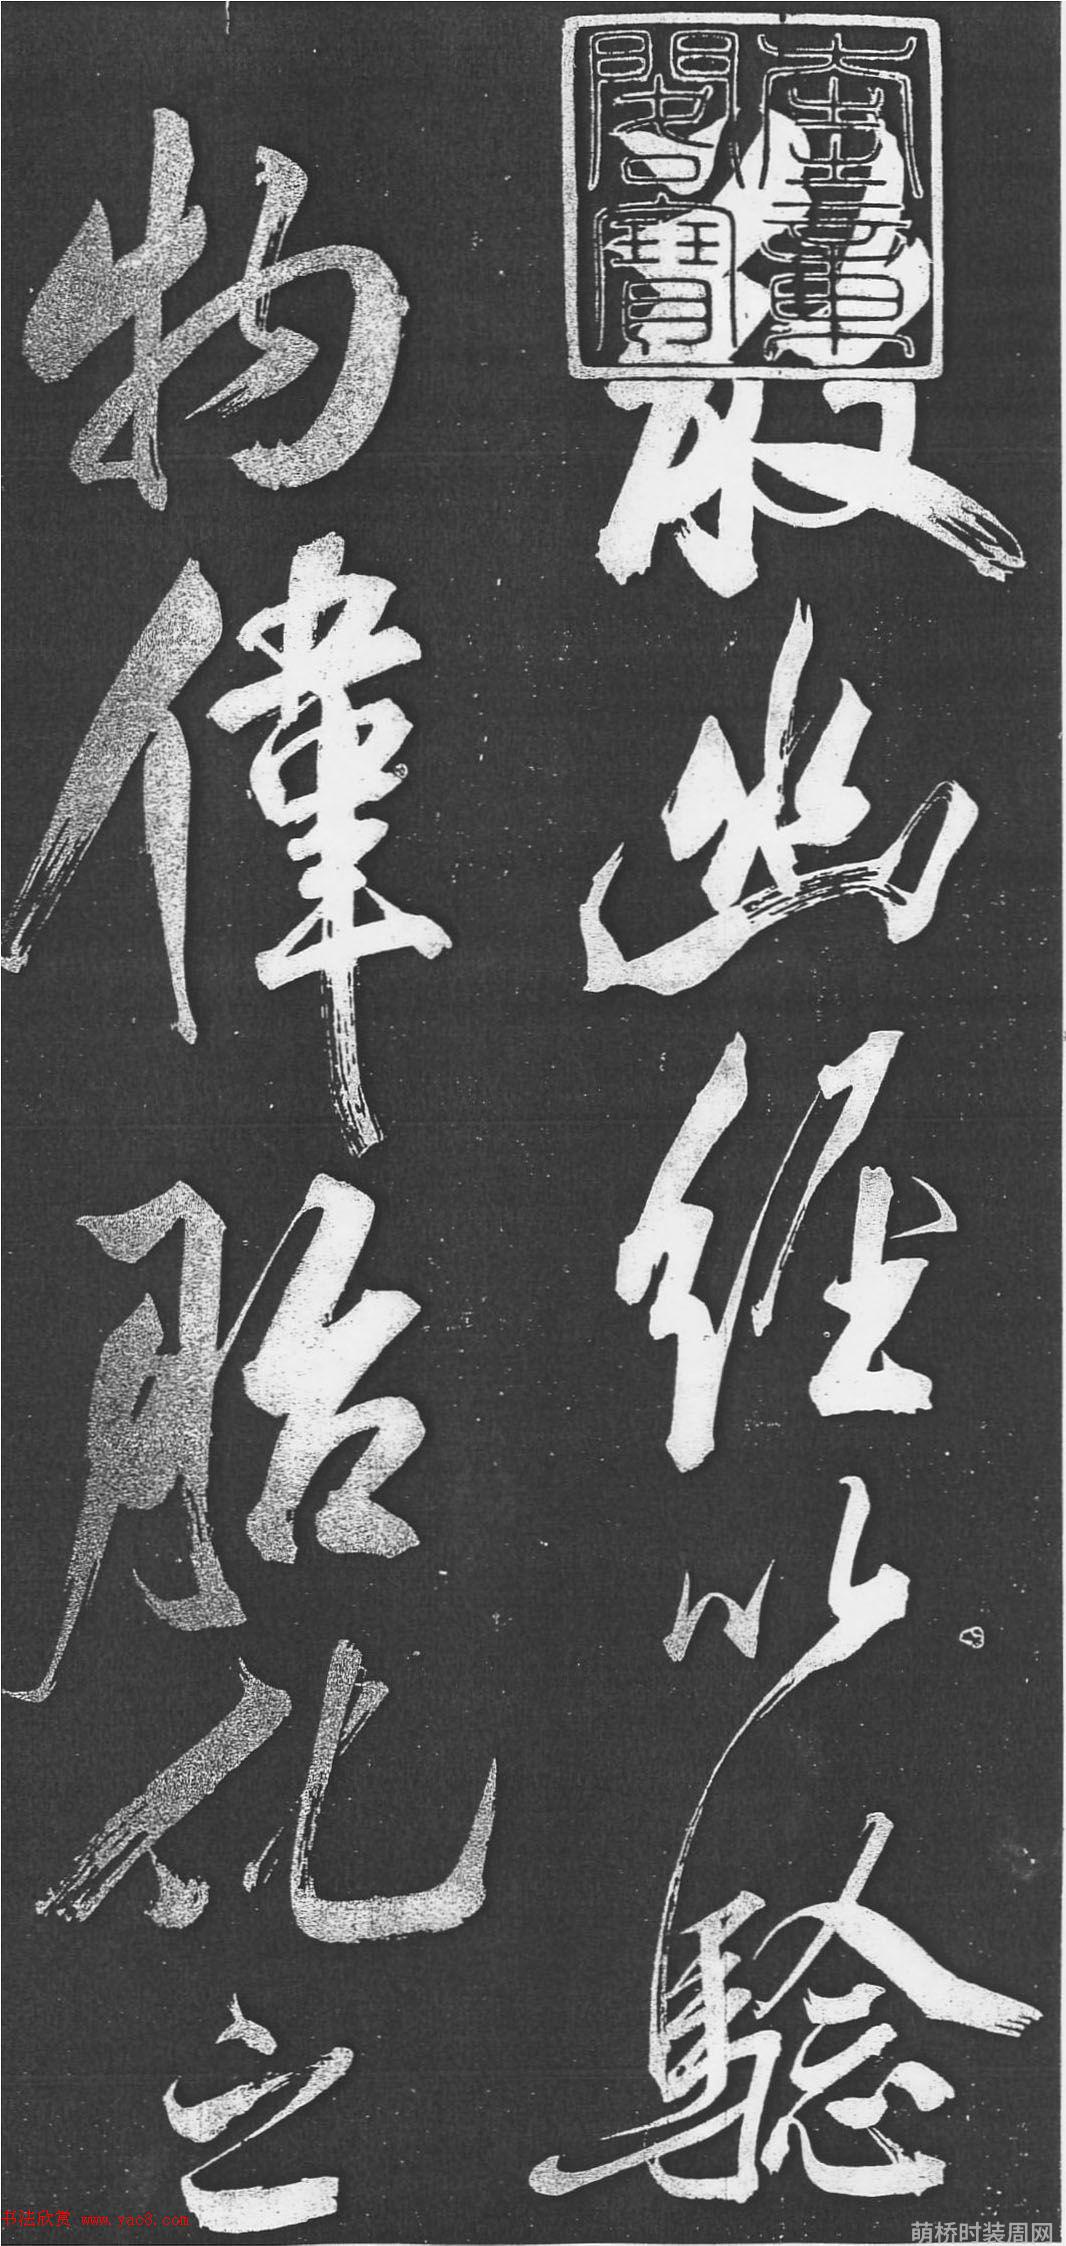 奎章
閣寶
散幽經以驗
物偉胎化之
书法欣赏 www.yac8.com
萌桥时装周网